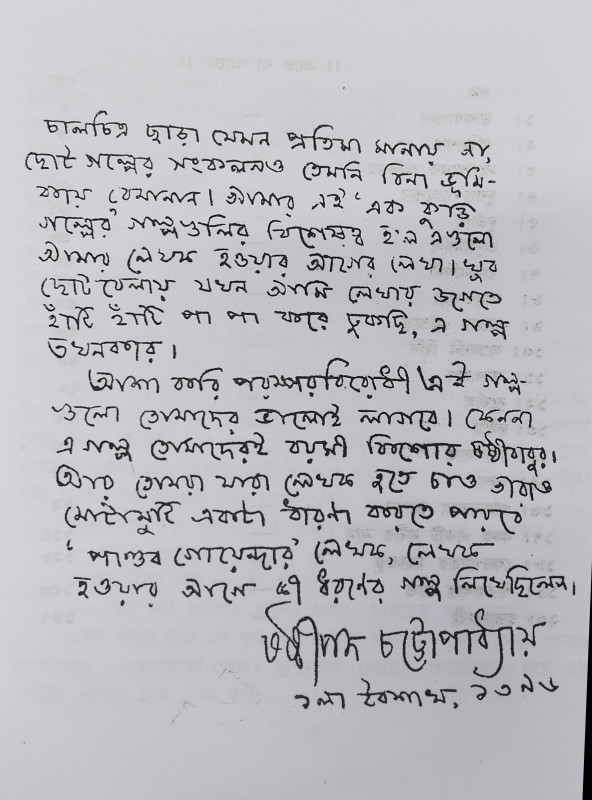 চালচিত্র ছাড়া যেমন প্রতিমা মানায় না,
ছোট গল্পের সংকলনও তেমনি বিনা ভূমি-
কায় বেমানান। আমার এই 'এক কুড়ি
গল্পের' গল্পগুলির বিশেষত্ব হ'ল এগুলো
আমার লেখক হওয়ার আগের লেখা। খুব
ছোটবেলায় যখন আমি লেখার জগতে
হাঁটি হাঁটি পা পা করে ঢুকছি, এ গল্প
তখনকার।
আশা করি পরস্পরবিরোধী এই গল্প-
গুলো তোমাদের ভালোই লাগবে। কেননা
এ গল্প তোমাদেরই বয়সী কিশোর ষষ্ঠীবাবুর।
আর তোমরা যারা লেখক হতে চাও তারাও
মোটামুটি একটা ধারণা করতে পারবে
'পাণ্ডব গোয়েন্দার' লেখক, লেখক
হওয়ার আগে কী ধরণের গল্প লিখেছিলেন।
ষষ্ঠীপদ চট্টোপাধ্যায়
১লা বৈশাখ, ১৩৯৬